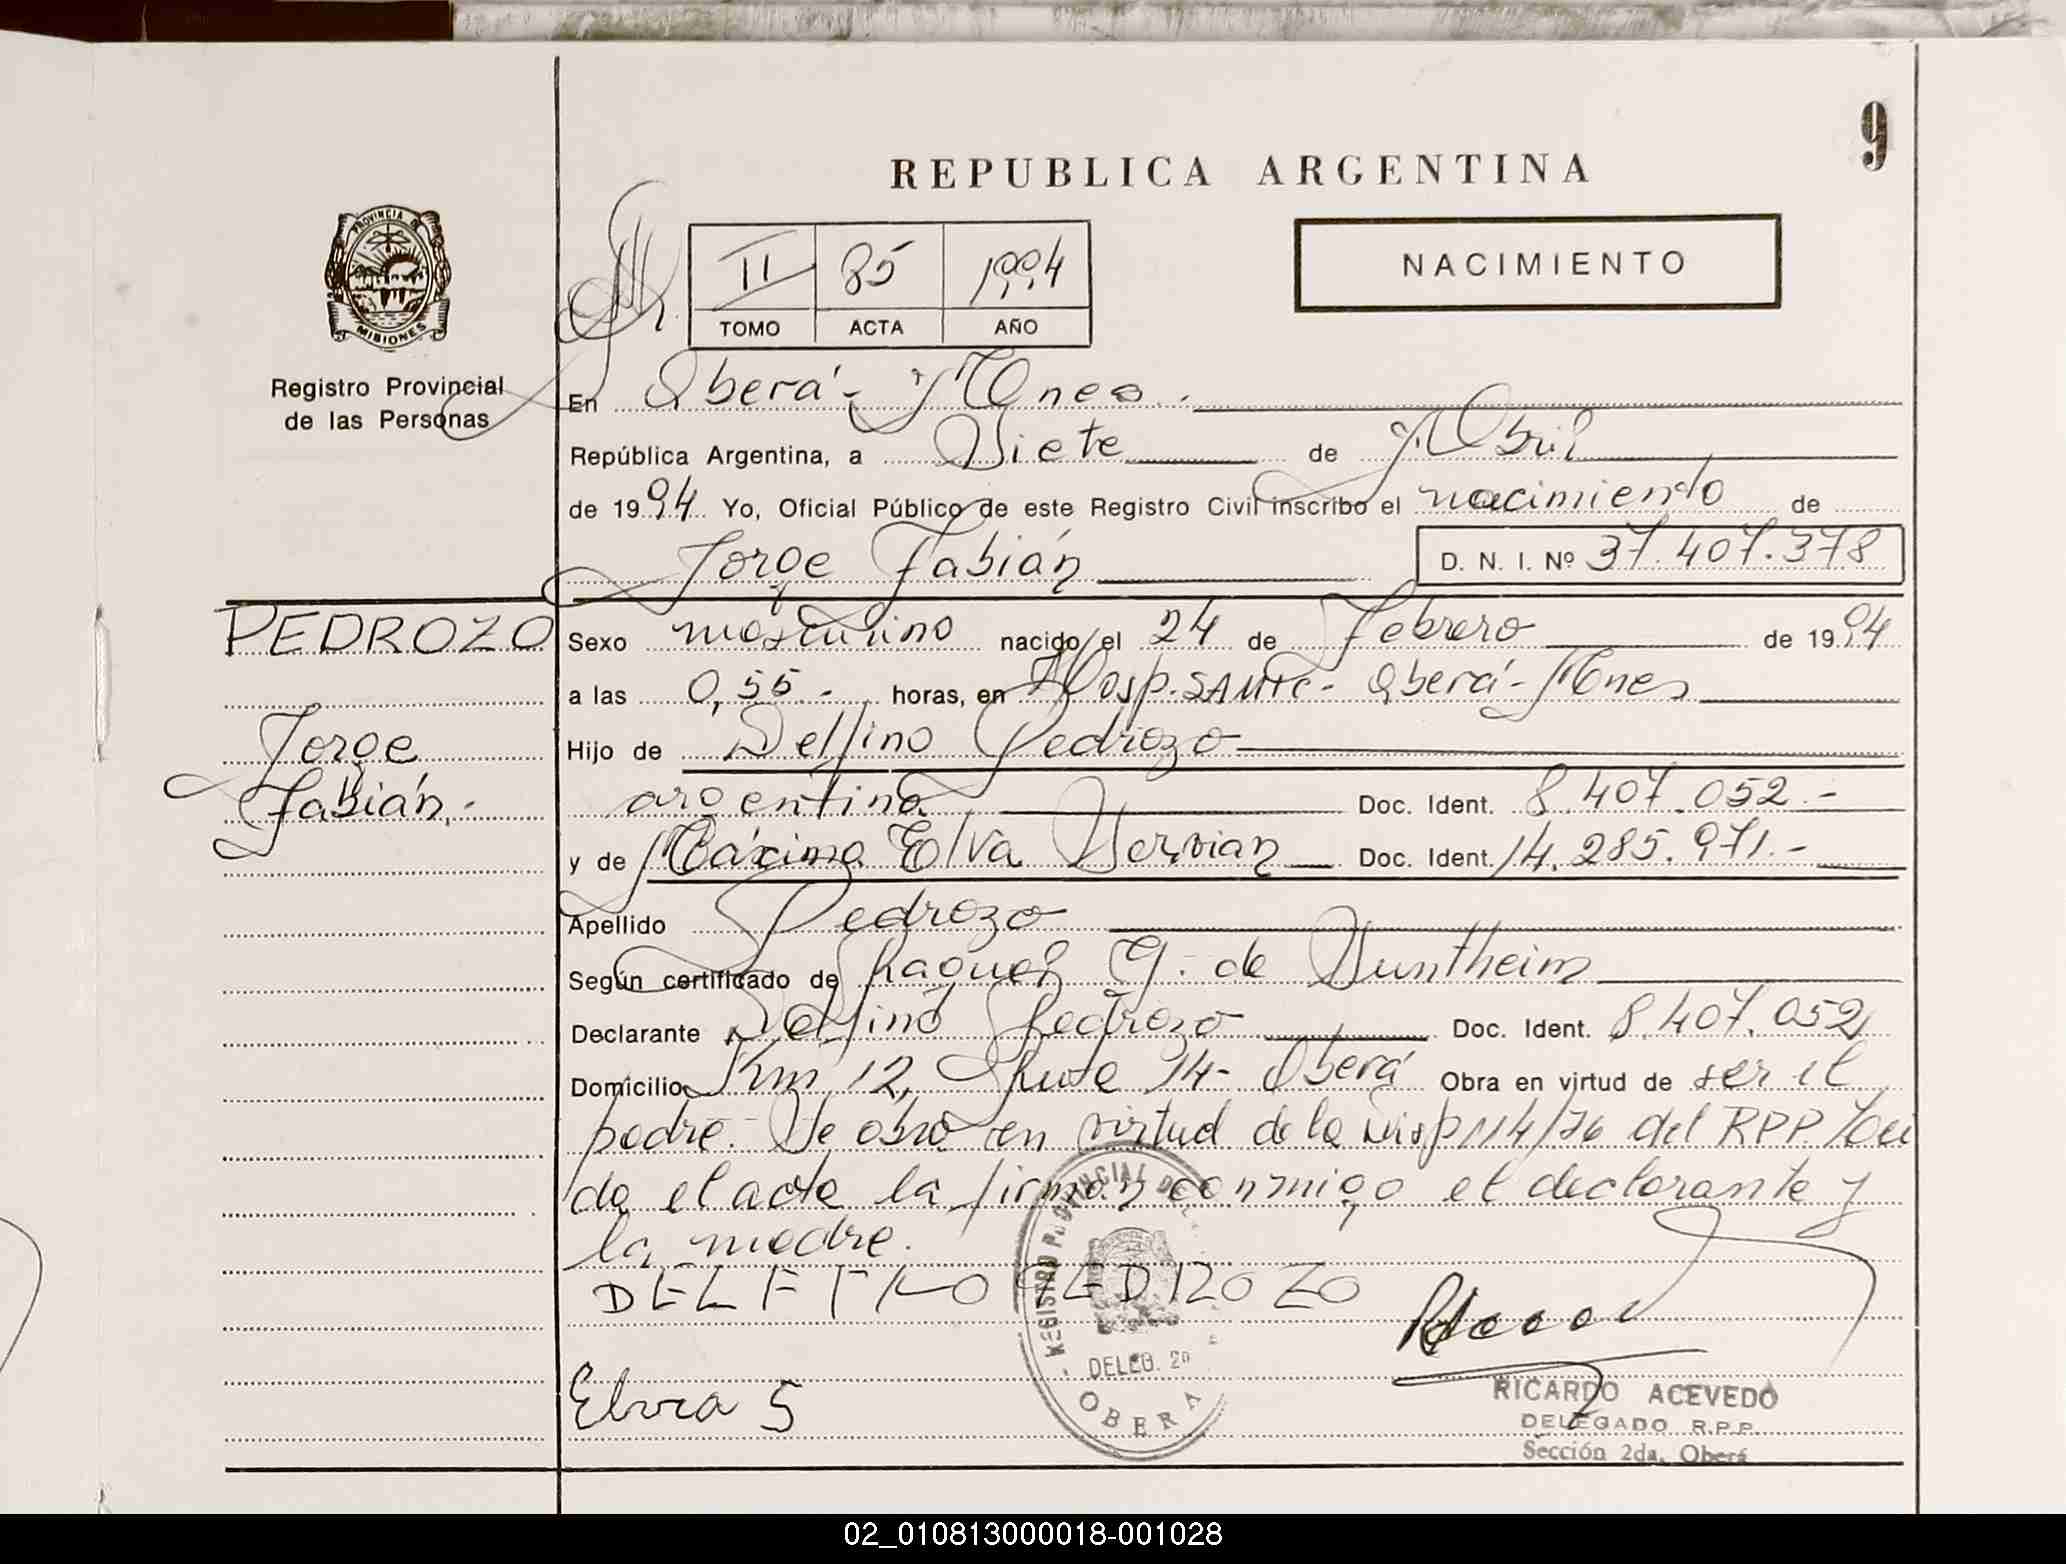 9
REPUBLICA ARGENTINA
PROVINCIA DE
MISIONES
Registro Provincial
de las Personas
II 85 1994
TOMO ACTA AÑO
NACIMIENTO
En Oberá - Mnes.
República Argentina, a Siete de Abril
de 1994 Yo, Oficial Público de este Registro Civil inscribo el nacimiento de
Jorge Fabián D. N. I. Nº 37.407.378
PEDROZO
Jorge
Fabián.-
Sexo masculino nacido el 24 de Febrero de 1994
a las 0,55.- horas, en Hosp. SAMIC - Oberá - Mnes
Hijo de Delfino Pedrozo
argentino Doc. Ident. 8.407.052.-
y de Máxima Elva Doc. Ident. 14.285.971.-
Apellido Pedrozo
Según certificado de Raquel G. de Suntheim
Declarante Delfino Pedrozo Doc. Ident. 8.407.052
Domicilio Km 12, Ruta 14 - Oberá Obra en virtud de ser el
padre. Se obró en virtud de la Disp 114/76 del RPP Leí
da el acta la firman conmigo el declarante y
la madre.
DELFINO PEDROZO
Elvra S
REGISTRO PROVINCIAL DE
DELEG. 2a
OBERA
RICARDO ACEVEDO
DELEGADO R.P.P.
Sección 2da. Oberá
02_010813000018-001028